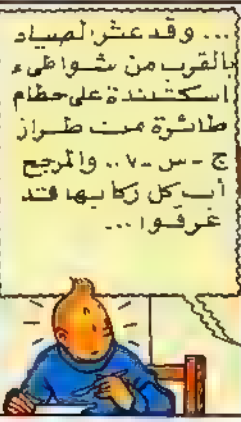 ... وقد عثر الصياد
بالقرب من شواطىء
اسكتلندة على حطام
طائرة من طراز
ج - س - ٧ .. والمرجح
أن كل ركابها قد
غرقوا ...